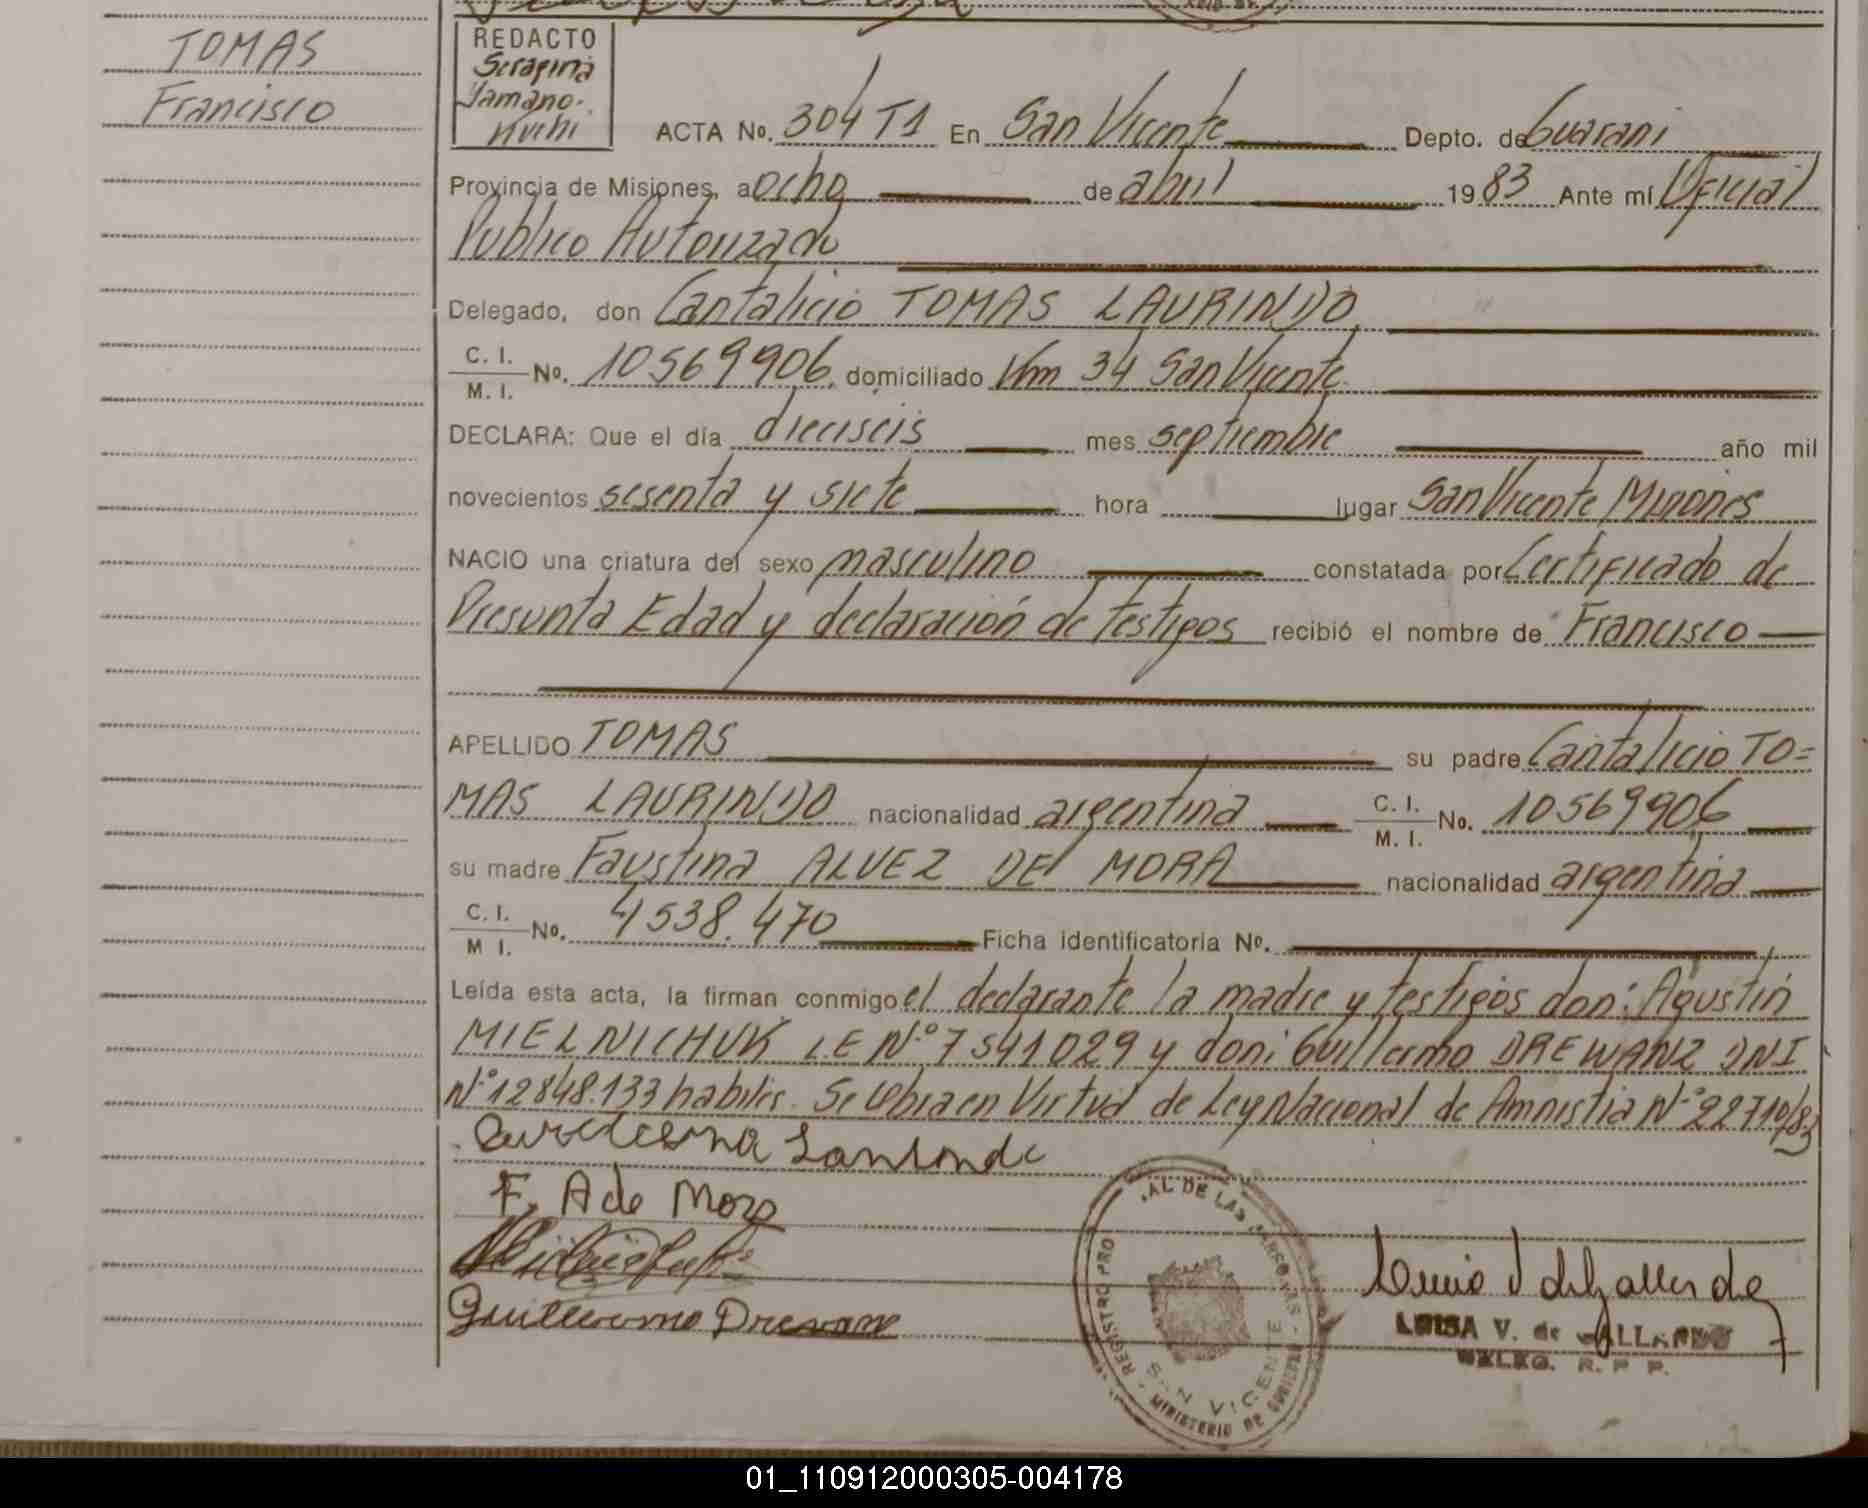 TOMAS
Francisco
REDACTO
Serafina
Yamano-
ACTA No. 304 T1 En San Vicente Depto. de Guarani
Provincia de Misiones, a ocho de abril 1983 Ante mí Oficial
Publico Autorizado
Delegado, don Cantalicio TOMAS LAURINDO
C. I.
M. I. No. 10569906 domiciliado Km 34 San Vicente
DECLARA: Que el día dieciseis mes septiembre año mil
novecientos sesenta y siete hora lugar San Vicente Misiones
NACIO una criatura del sexo masculino constatada por Certificado de
Presunta Edad y declaración de testigos recibió el nombre de Francisco
APELLIDO TOMAS su padre Cantalicio TO=
MAS LAURINDO nacionalidad argentina C. I. M. I. No. 10569906
su madre Faustina ALVEZ DE MORA nacionalidad argentina
C. I.
M I. No. 4538.470 Ficha identificatoria No.
Leída esta acta, la firman conmigo el declarante la madre y testigos don: Agustín
MIELNICHUK LE Nº 7541029 y don: Guillermo DREWANZ DNI
Nº 12848.133 habiles. Se labra en Virtud de Ley Nacional de Amnistia Nº 22710/83
F. A de Mora
Guillermo
REGISTRO PRO AL DE LAS PERSONAS
SAN VICENTE
MINISTERIO DE GOBIERNO
LUISA V. de GALLARDO
DELEG. R. P. P.
01_110912000305-004178